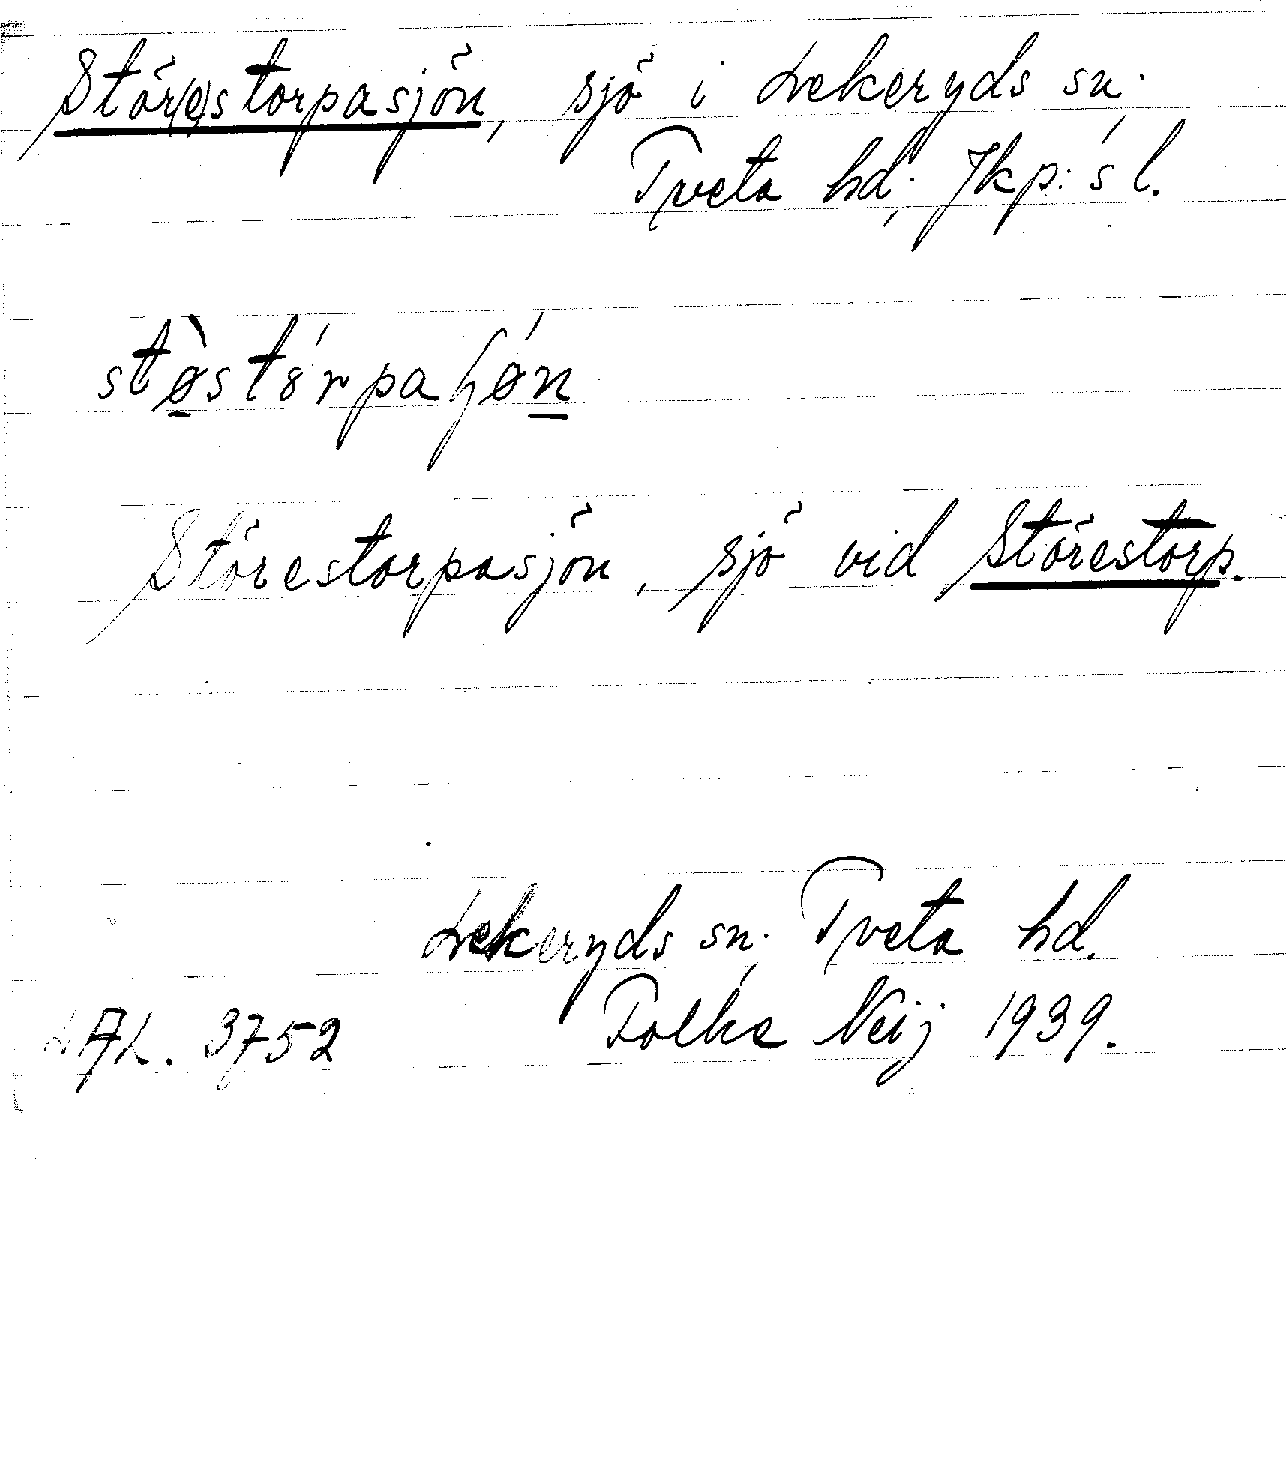 Stör(e)storpasjön, sjö i Lekeryds sn.
Tveta hd, Jkp:s l.
Störestorpasjön, sjö vid Störestorp.
Lekeryds sn. Tveta hd.
AL. 3752 Folke Neij 1939.